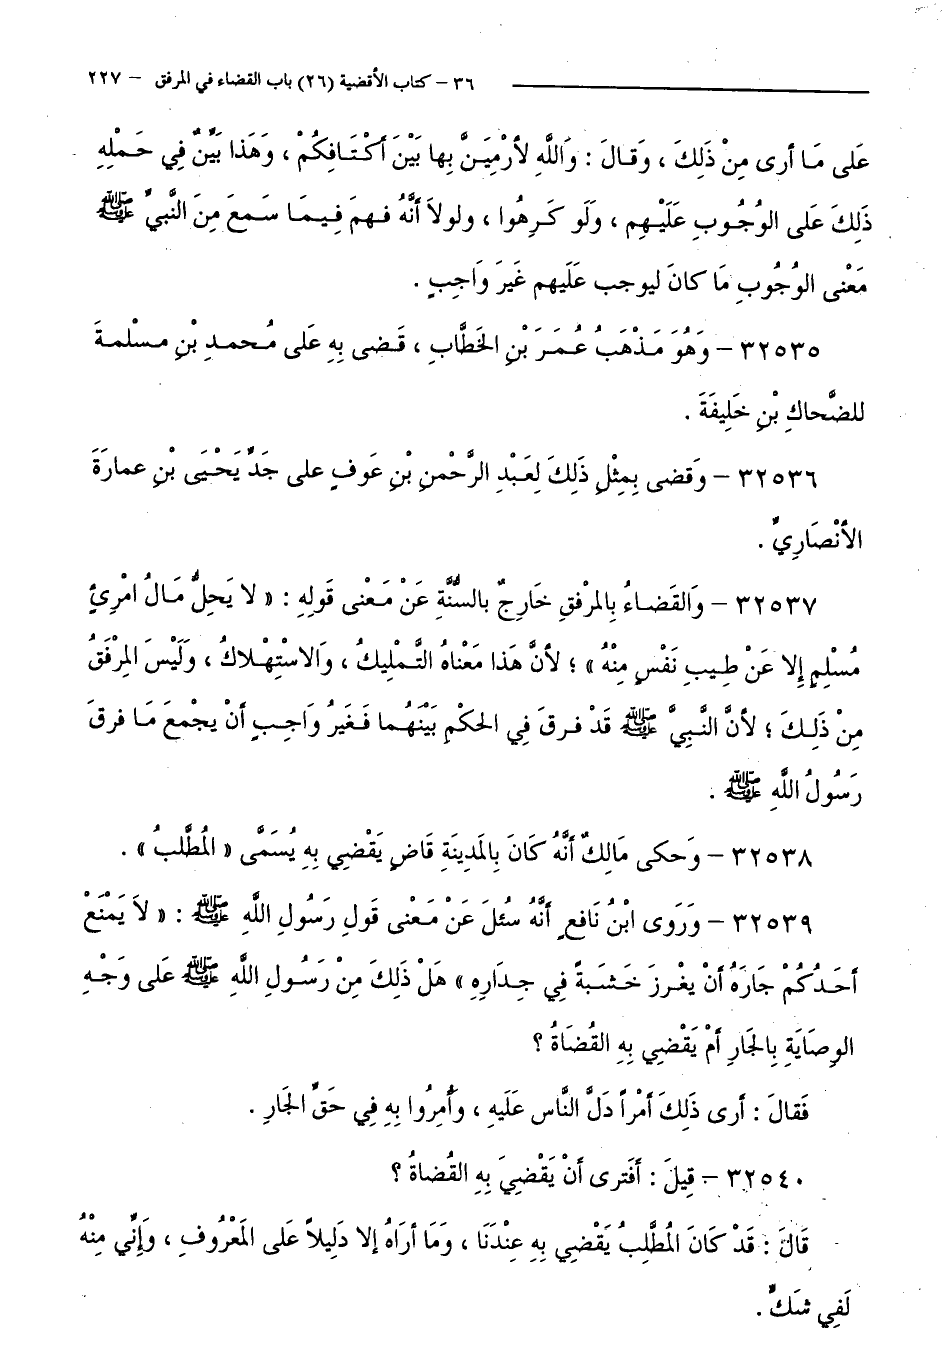 ٣٦ – كتاب الأقضية (٢٦) باب القضاء في المرفق – ٢٢٧
عَلى مَا أرى مِنْ ذَلِكَ ، وَقالَ : وَاللَّهِ لأرْمِيَنَّ بِها بَيْنَ أكْتَافِكُمْ ، وَهَذا بَيِّنٌ فِي حَمْلِهِ
ذَلِكَ عَلى الوُجُوبِ عَلَيْهِم ، وَلَو كَرِهُوا ، ولولاَ أنَّهُ فهمَ فِيمَا سَمعَ مِنَ النَّبيِّ ﷺ
مَعْنى الوُجُوبِ مَا كانَ ليوجب عَلَيهم غَيرَ وَاجِبٍ .
٣٢٥٣٥ – وَهُوَ مَذْهَبُ عُمَرَ بْنِ الخَطَّابِ ، قَضى بِهِ عَلى مُحمدِ بْنِ مسْلمةَ
للضَّحاكِ بْنِ خَلِيفَةَ .
٣٢٥٣٦ – وَقضى بِمِثْلِ ذَلِكَ لِعَبْدِ الرَّحْمنِ بْنِ عَوفٍ على جَدِّ يَحْيَى بْنِ عمارَةَ
الأنْصَارِيِّ .
٣٢٥٣٧ – وَالقضَاءُ بالمرْفقِ خَارِجٌ بالسُّنَّةِ عَنْ مَعْنى قَولِهِ : « لا يَحِلُّ مَالُ امْرِئٍ
مُسْلِمٍ إِلا عَنْ طِيبِ نَفْسٍ مِنْهُ » ؛ لأنَّ هَذا مَعْناهُ التَّمْلِيكُ ، وَالاسْتِهْلاكُ ، وَلَيْسَ المِرْفَقُ
مِنْ ذَلِكَ ؛ لأنَّ النَّبِيَّ ﷺ قَدْ فرقَ فِي الحكْمِ بَيْنَهُما فَغَيرُ وَاجبٍ أنْ يجْمعَ مَا فرقَ
رَسُولُ اللَّهِ ﷺ .
٣٢٥٣٨ – وَحكى مَالِكٌ أنَّهُ كَانَ بِالمَدِينَةِ قَاضٍ يَقْضِي بِهِ يُسَمَّى « المُطَّلبُ » .
٣٢٥٣٩ – وَرَوى ابْنُ نَافعٍ أنَّهُ سُئلَ عَنْ مَعْنى قَولِ رَسُولِ اللَّهِ ﷺ : « لاَ يَمْنَعْ
أحَدُكُمْ جَارَهُ أنْ يغْرزَ خَشَبَةً فِي جِدَارِهِ » هَلْ ذَلِكَ مِنْ رَسُولِ اللَّهِ ﷺ عَلى وَجْهِ
الوِصَايَةِ بِالجَارِ أمْ يَقْضِي بِهِ القُضَاةُ ؟
فَقالَ : أرى ذَلِكَ أمْراً دَلَّ النَّاس عَلَيهِ ، وَأُمِرُوا بِهِ فِي حَقِّ الجَارِ .
٣٢٥٤٠ – قِيلَ : أفَترى أنْ يَقْضِيَ بِهِ القُضاةُ ؟
قَالَ : قَدْ كَانَ المُطَّلِبُ يَقْضِي بِهِ عِنْدَنَا ، وَمَا أرَاهُ إلا دَلِيلاً عَلى المَعْرُوفِ ، وَإِنِّي مِنْهُ
لَفِي شَكٍّ .